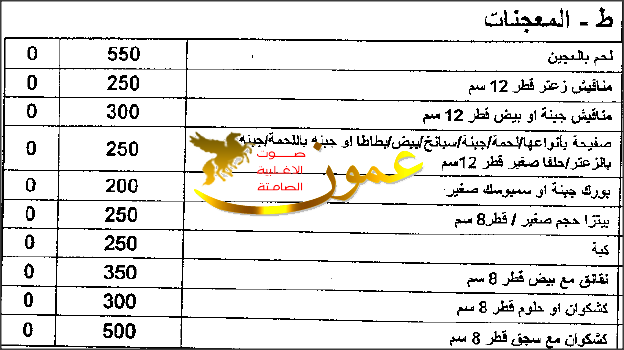 ط - المعجنات
لحم بالعجين 550 0
مناقيش زعتر قطر 12 سم 250 0
مناقيش جبنة او بيض قطر 12 سم 300 0
صفيحة بأنواعها/لحمة/جبنة/سبانخ/بيض/بطاطا او جبنه باللحمة/جبنه
بالزعتر/حلفا صغير قطر 12سم 250 0
بورك جبنة او سمبوسك صغير 200 0
بيتزا حجم صغير / قطر8 سم 250 0
كبة 250 0
نقانق مع بيض قطر 8 سم 350 0
كشكوان او حلوم قطر 8 سم 300 0
كشكوان مع سجق قطر 8 سم 500 0
عمون
صوت
الاغلبية
الصامتة